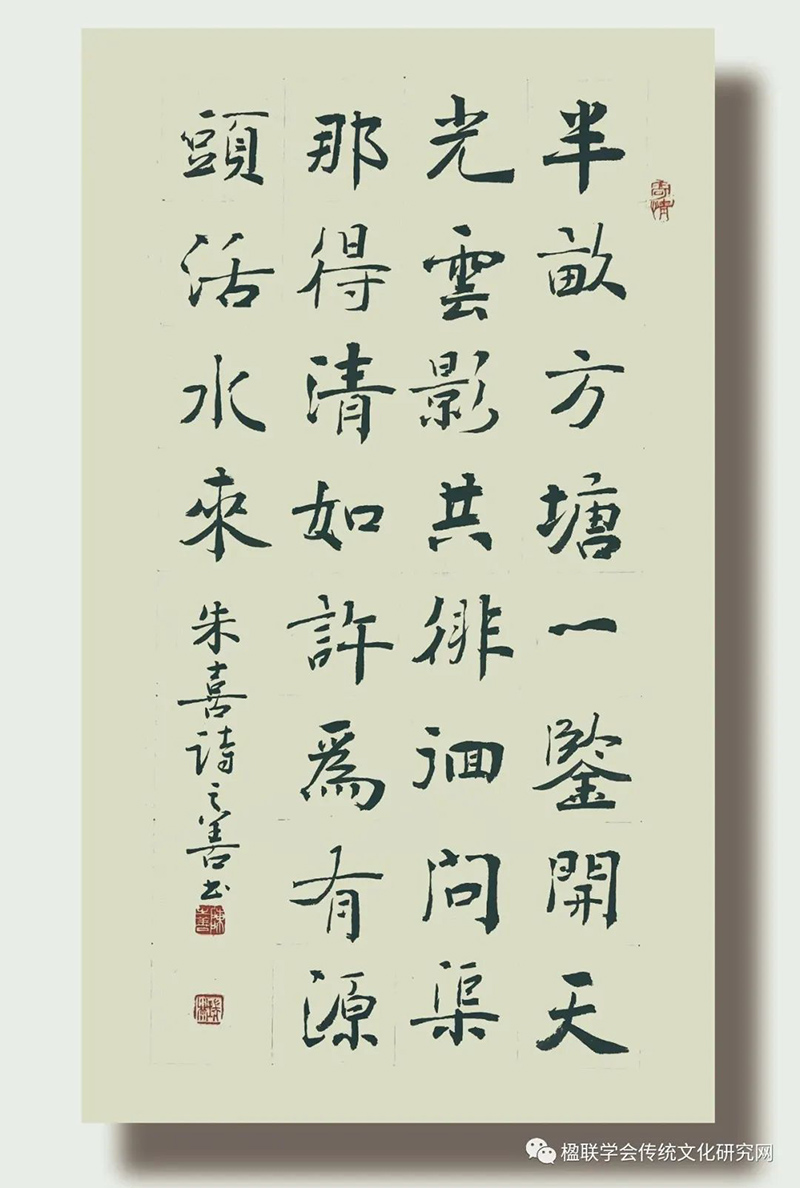 半畝方塘一鑒開天
光雲影共徘徊問渠
那得清如許爲有源
頭活水來
朱喜詩之善书
楹联学会传统文化研究网